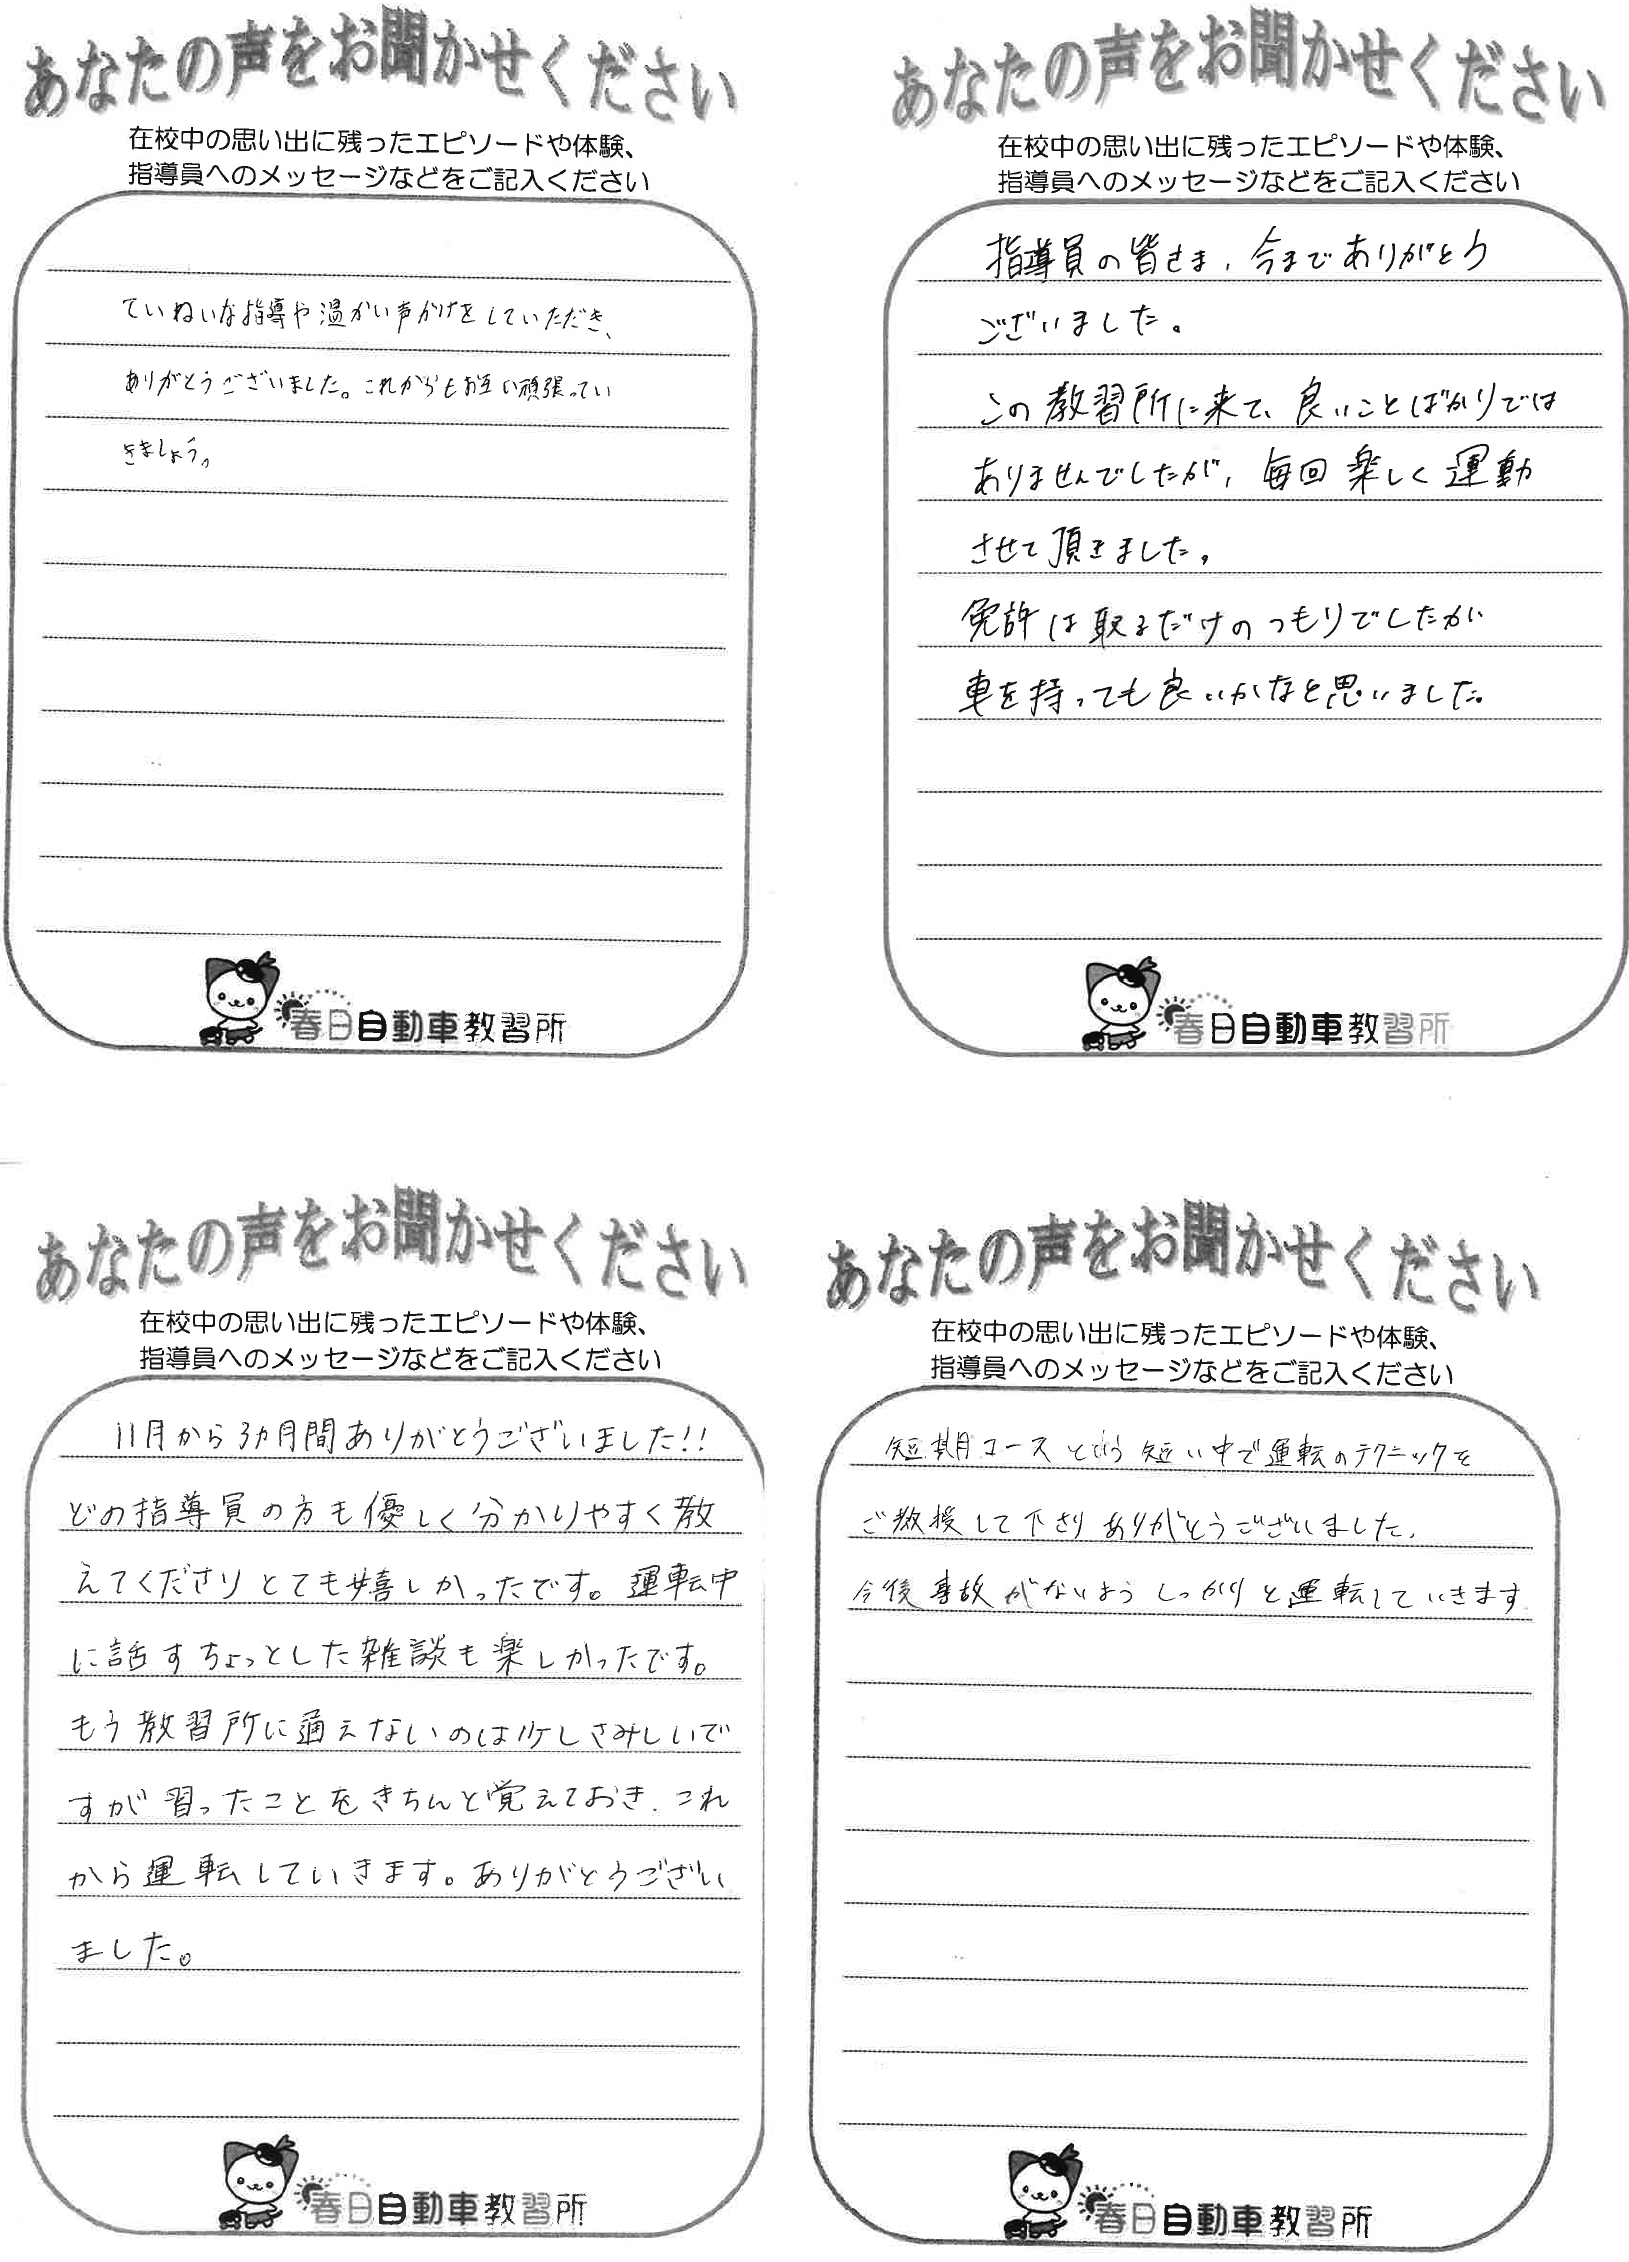 あなたの声をお聞かせください
在校中の思い出に残ったエピソードや体験、
指導員へのメッセージなどをご記入ください
ていねいな指導や温かい声かけをしていただき、
ありがとうございました。これからもお互い頑張ってい
きましょう。
春日自動車教習所
あなたの声をお聞かせください
在校中の思い出に残ったエピソードや体験、
指導員へのメッセージなどをご記入ください
指導員の皆さま、今までありがとう
ございました。
この教習所に来て、良いことばかりでは
ありませんでしたが、毎回楽しく運動
させて頂きました。
免許は取るだけのつもりでしたが
車を持っても良いかなと思いました。
春日自動車教習所
あなたの声をお聞かせください
在校中の思い出に残ったエピソードや体験、
指導員へのメッセージなどをご記入ください
11月から3カ月間ありがとうございました!!
どの指導員の方も優しく分かりやすく教
えてくださりとても嬉しかったです。運転中
に話すちょっとした雑談も楽しかったです。
もう教習所に通えないのは少しさみしいで
すが習ったことをきちんと覚えておき、これ
から運転していきます。ありがとうござい
ました。
春日自動車教習所
あなたの声をお聞かせください
在校中の思い出に残ったエピソードや体験、
指導員へのメッセージなどをご記入ください
短期コースという短い中で運転のテクニックを
ご教授して下さりありがとうございました。
今後事故がないようしっかりと運転していきます
春日自動車教習所